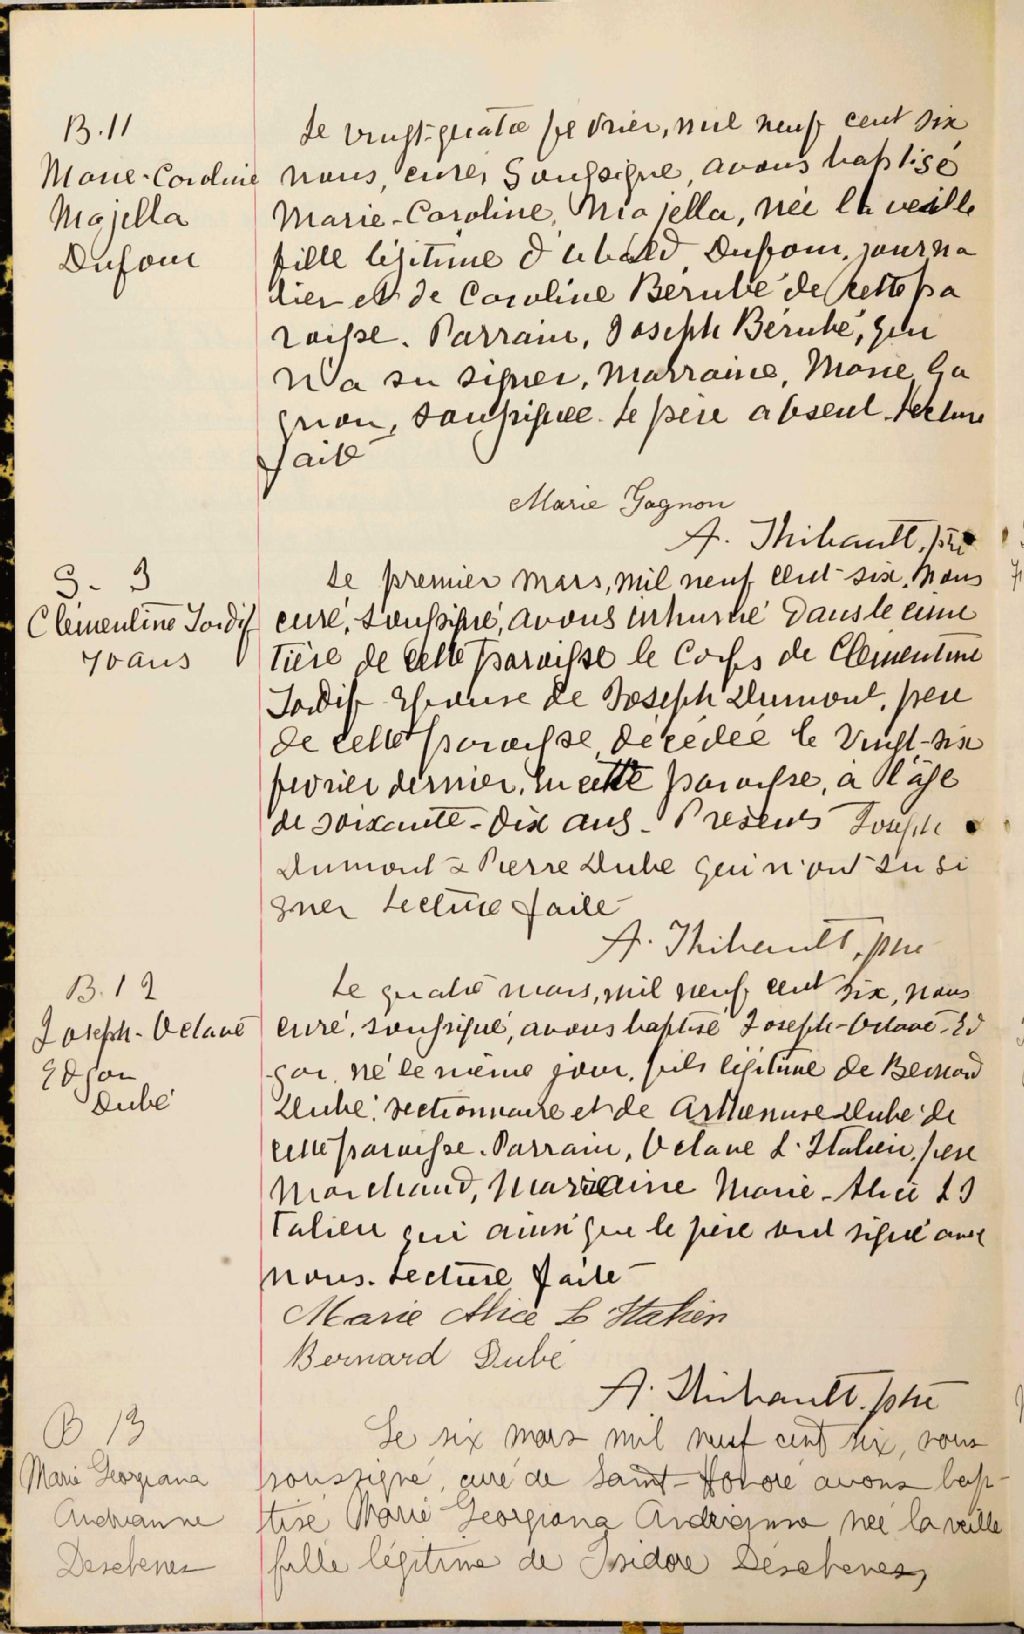 B.11
Marie-Caroline
Majella
Dufour
Le vingt-quatre février, mil neuf cent six
nous, curé, Soussigné, avons baptisé
Marie-Caroline, Majella, née la veille
fille légitime d'Ubald Dufour, journa
lier et de Caroline Bérubé de cette pa
roisse. Parrain, Joseph Bérubé, qui
n'a su signer, Marraine, Marie Ga
gnon, soussignée. Le père absent. Lecture
faite
Marie Gagnon
A. Thibault, ptre
S. 3
Clémentine Tardif
70 ans
Le premier mars, mil neuf cent six, nous
curé, soussigné, avons inhumé dans le cime
tière de cette paroisse le Corps de Clémentine
Tardif Epouse de Joseph Dumont, père
de cette paroisse, décédée le vingt-six
février dernier, en cette paroisse, à l'âge
de soixante-dix ans. Présents Joseph
Dumont & Pierre Dubé qui n'ont su si
gner Lecture faite
A. Thibault, ptre
B. 12
Joseph-Octave
Edgar
Dubé
Le quatre mars, mil neuf cent six, nous
curé, soussigné, avons baptisé Joseph-Octave-Ed
gar, né le même jour, fils légitime de Bernard
Dubé, sectionnaire et de Arthémise Dubé de
cette paroisse. Parrain, Octave L'Italien, père
Marchand, Marraine Marie-Alice L'I
talien qui ainsi que le père ont signé avec
nous. Lecture faite
Marie Alice L Italien
Bernard Dubé
A. Thibault, ptre
B 13
Marie Georgiana
Andrianne
Deschenes
Le six mars mil neuf cent six, nous
soussigné, curé de Saint-Honoré avons bap-
tisé Marie Georgiana Andrianne née la veille
fille légitime de Isidore Déschenes,